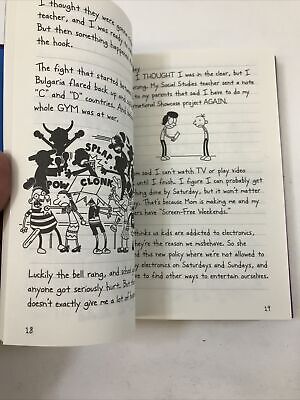 I thought they were gett
teacher, and I was ready
But then something happen
the hook.
The fight that started
Bulgaria flared back up
"C" and "D" countries. And b
whole GYM was at war.
SPLAP
POW
CLONK
Luckily the bell rang, and school
anyone got seriously hurt. But
doesn't exactly give me a lot of
18
day
I THOUGHT I was in the clear, but I
wrong. My Social Studies teacher sent a note
my parents that said I have to do my
rnational Showcase project AGAIN.
m said I can't watch TV or play video
until I finish. I figure I can probably get
thing done by Saturday, but it won't matter
ay. That's because Mom is making me and my
hers have "Screen-Free Weekends."
thinks us kids are addicted to electronics,
they're the reason we misbehave. So she
this new policy where we're not allowed to
electronics on Saturdays and Sundays, and
ve to find other ways to entertain ourselves.
19